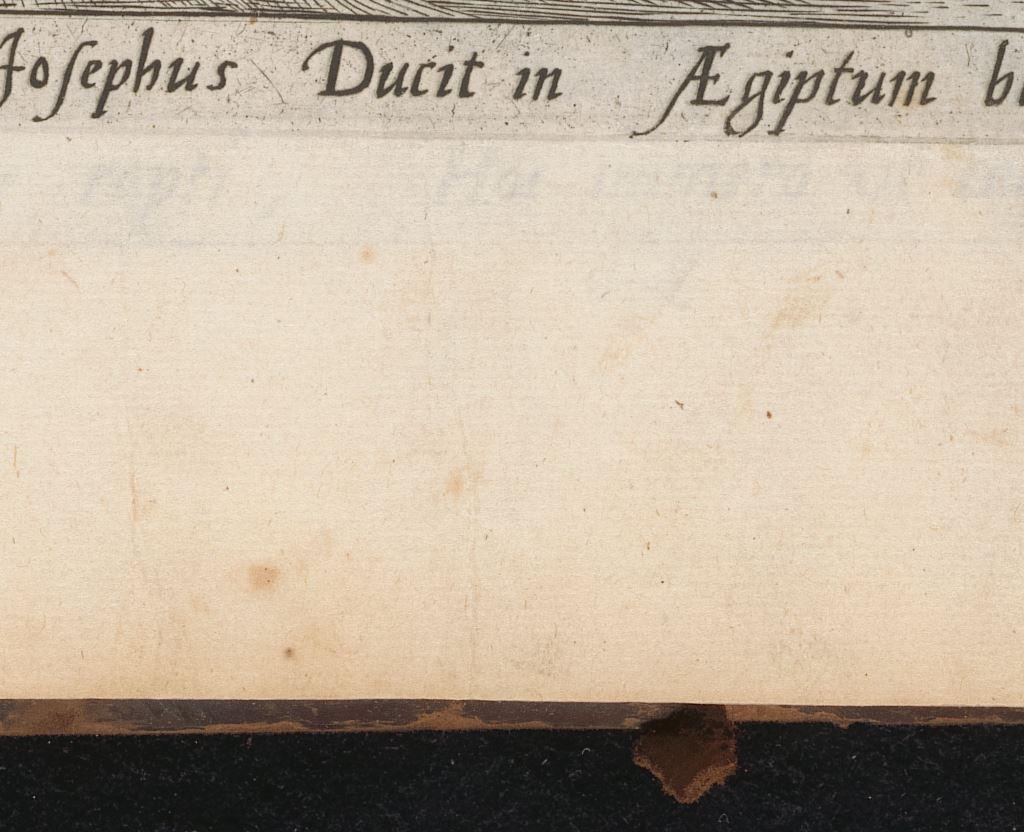 Joſephus Ducit in Ægiptum